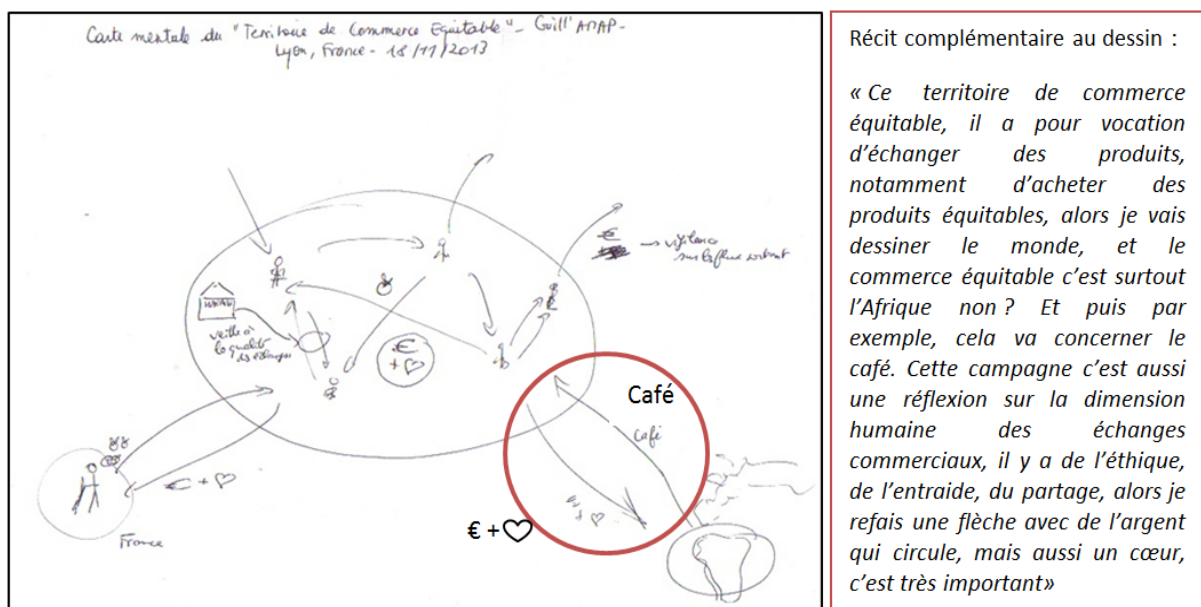 Carte mentale du "Territoire de Commerce Equitable" - Guill' AMAP -
Lyon, France - 18/11/2013
€
→ vigilance
sur les flux sortant
veille à
la qualité
des échanges
€
+ ♡
Café
Café
€ + ♡
€ + ♡
France
Récit complémentaire au dessin :
« Ce territoire de commerce
équitable, il a pour vocation
d’échanger des produits,
notamment d’acheter des
produits équitables, alors je vais
dessiner le monde, et le
commerce équitable c’est surtout
l’Afrique non ? Et puis par
exemple, cela va concerner le
café. Cette campagne c’est aussi
une réflexion sur la dimension
humaine des échanges
commerciaux, il y a de l’éthique,
de l’entraide, du partage, alors je
refais une flèche avec de l’argent
qui circule, mais aussi un cœur,
c’est très important»